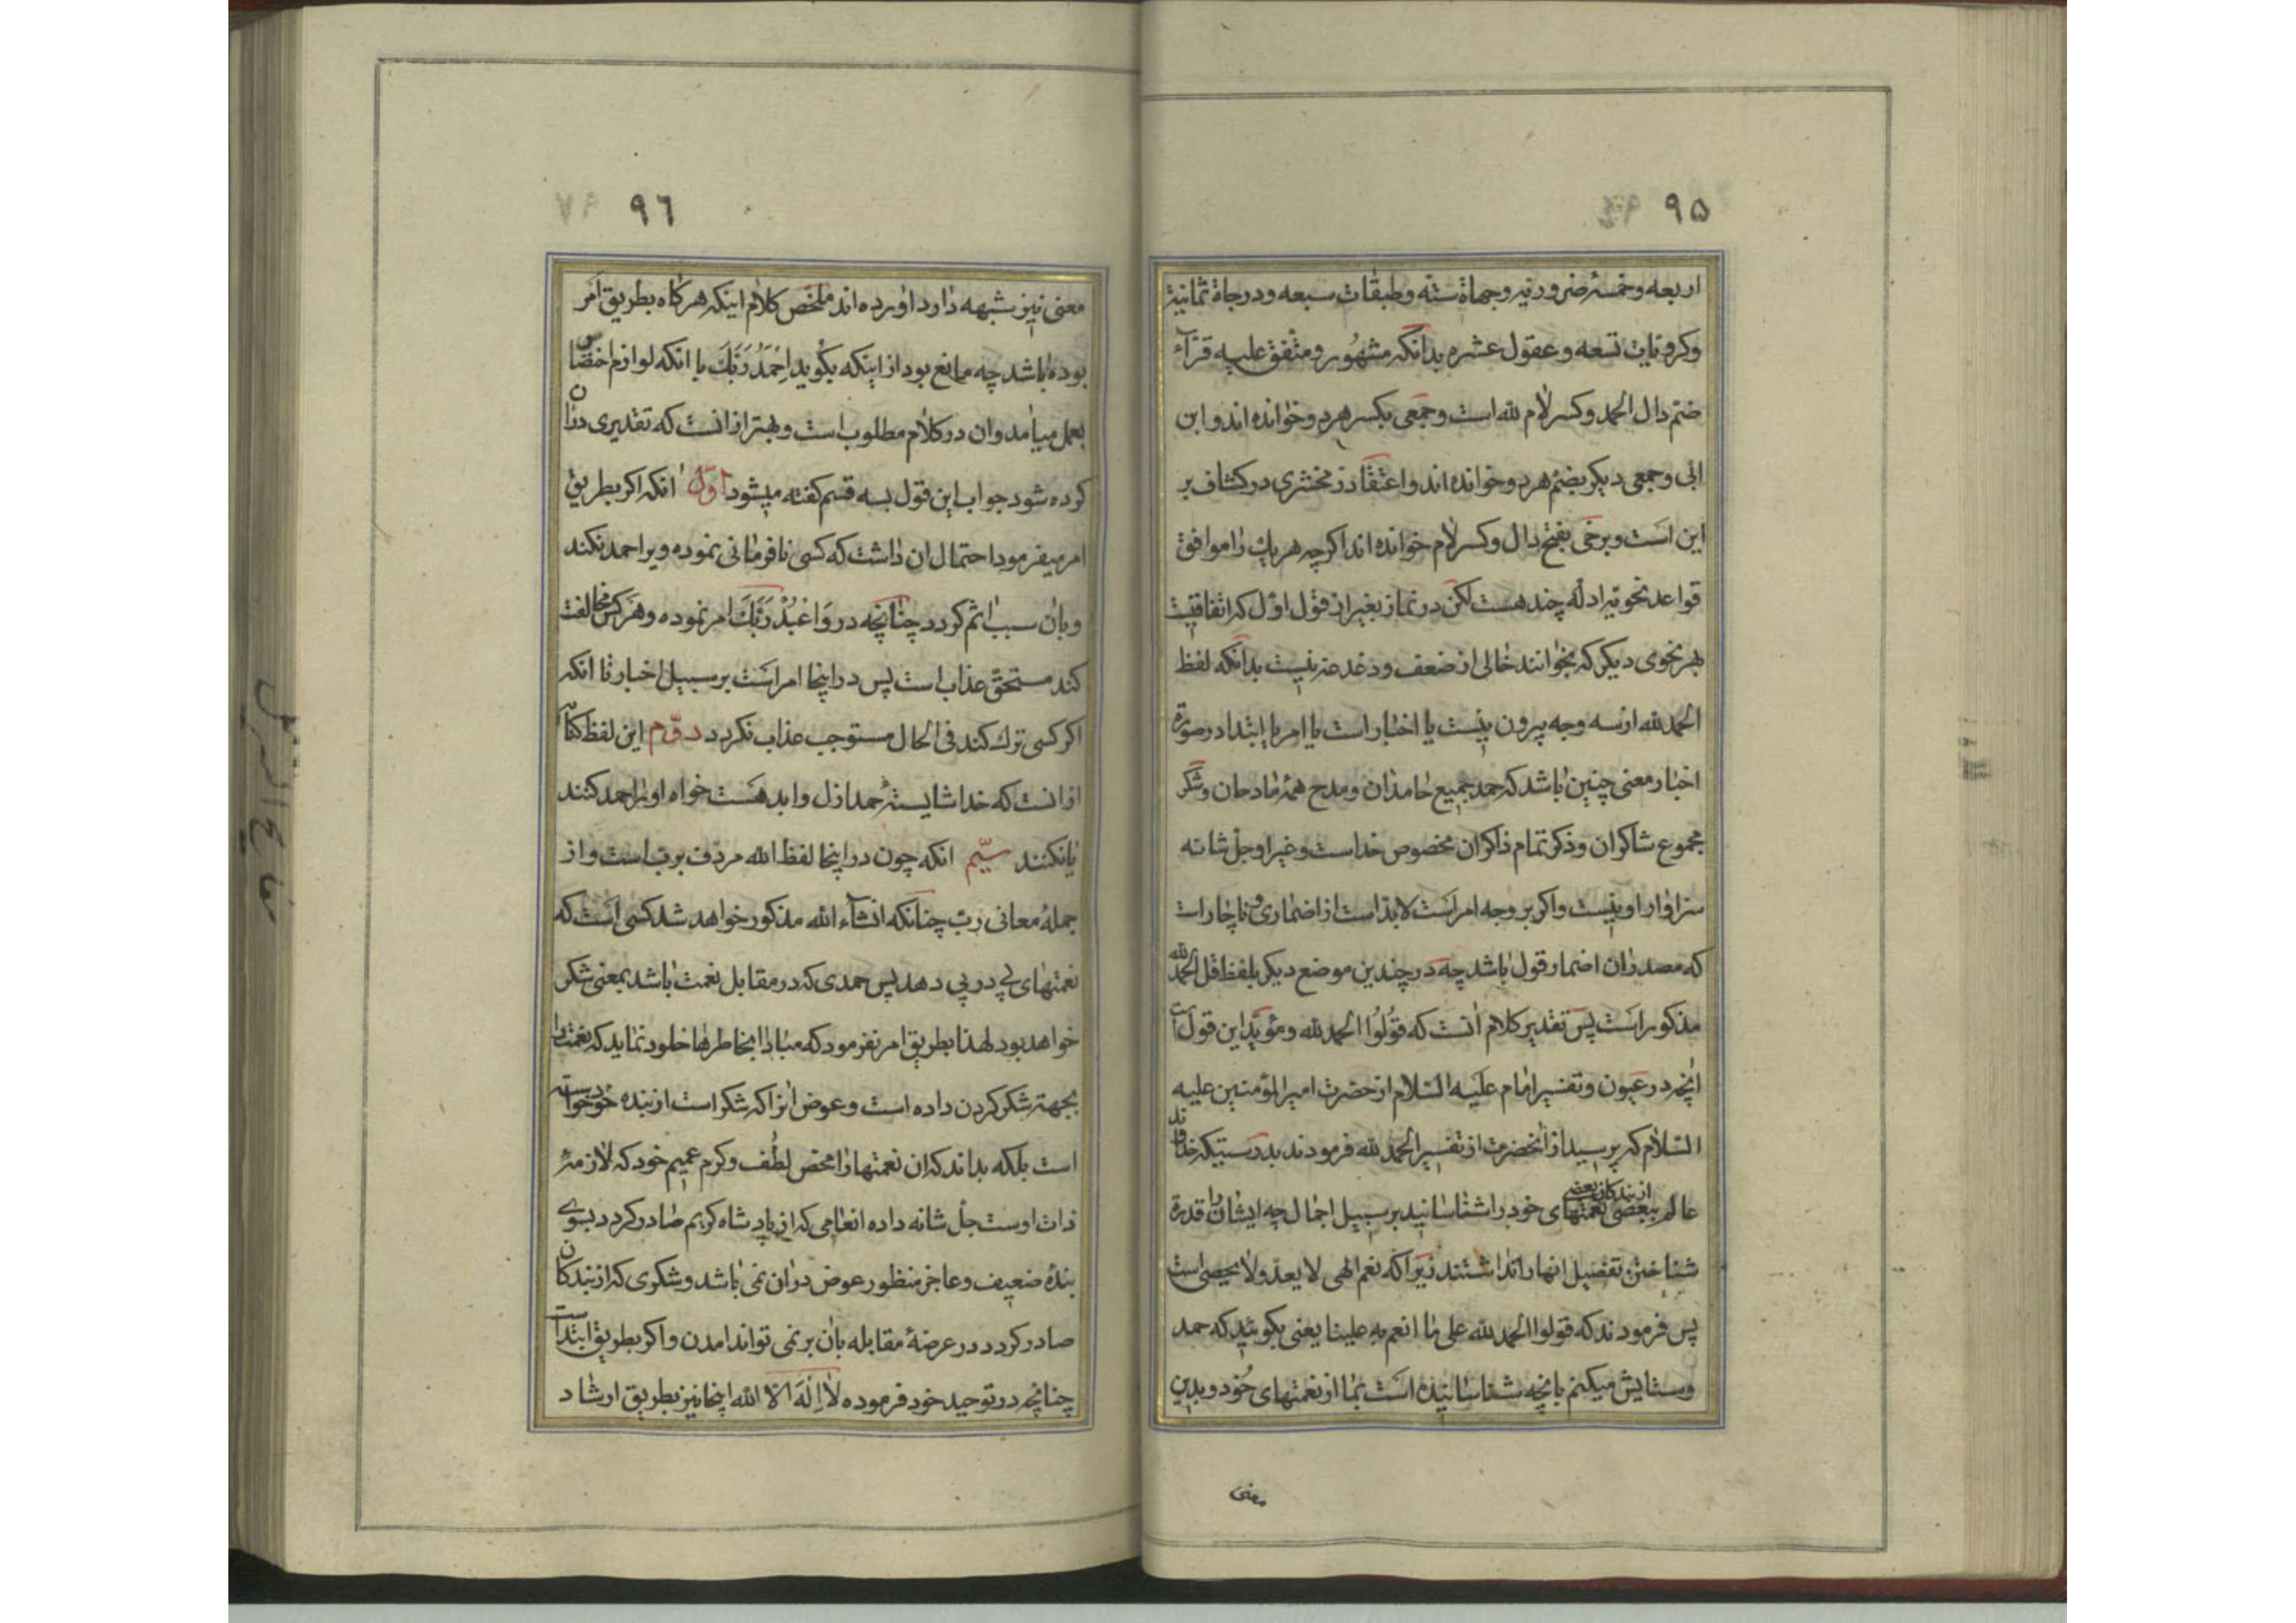 ۹۵
اربعه وخمسهٔ ضروریه وجهاة سته وطبقات سبعه ودرجاة ثمانیة
وکروبات تسعه وعقول عشره بدانکه مشهور ومتفق علیه قرآء
ضم دال الحمد وکسر لام لله است وجمعی بکسر هردو خوانده اند وابن
ابی وجمعی دیکر بضم هردو خوانده اند واعتقاد زمخشری در کشاف بر
این است وبرخی بفتح دال وکسر لام خوانده اند اکرچه هریک را موافق
قواعد نحویه ادله چند هست لکن در نماز بغیر از قول اول که اتفاقیست
بهر نحوی دیکر که بخوانند خالی از ضعف ودغدغه نیست بدانکه لفظ
الحمد لله از سه وجه بیرون نیست یا اخبار است یا امر یا ابتدا در صورة
اخبار معنی چنین باشد که حمد جمیع حامدان ومدح همهٔ مادحان وشکر
مجموع شاکران وذکر تمام ذاکران مخصوص خداست وغیر او جل شانه
سزاوار او نیست واکر بر وجه امر است لابد است از اضماری وناچار است
که مصدران اضمار قول باشد چه در چندین موضع دیکر بلفظ قل الحمد لله
مذکور است پس تقدیر کلام انست که قولوا الحمد لله ومؤید این قول است
انچه در عیون وتفسیر امام علیه السلام از حضرت امیرالمؤمنین علیه
السلام که پرسید از انحضرت از تفسیر الحمد لله فرمودند بدرستیکه خداوند
عالم ببعضی از بندکان بعضی نعمتهای خود را شناسانید بر سبیل اجمال چه ایشان را قدرة
شناختن تفصیل انها را نداشتند زیرا که نعم الهی لا یعد ولا یحصی است
پس فرمودند که قولوا الحمد لله علی ما انعم به علینا یعنی بکوئید که حمد
وستایش میکنم بانچه شناسانیده است بما از نعمتهای خود وبدین
معنی
۹٦
معنی نیز شبهه دارد اورده اند ملخص کلام اینکه هرکاه بطریق امر
بوده باشد چه مانع بود از اینکه بکوید احمد ربک با انکه لوازم اختصاص
بعمل میامد وان در کلام مطلوب است وبهتر از انست که تقدیری دران
کرده شود جواب این قول بسه قسم کفته میشود اوّل انکه اکر بطریق
امر میفرمود احتمال ان داشت که کسی نافرمانی نموده ویرا حمد نکند
وبان سبب اثم کردد چنانچه در وَاعْبُدْ رَبَّكَ امر نموده وهر کس مخالفت
کند مستحق عذاب است پس در اینجا امر است بر سبیل اخبار تا انکه
اکر کسی ترک کند فی الحال مستوجب عذاب نکردد دوّم این لفظ کنایه
از انست که خدا شایستهٔ حمد ازل وابد هست خواه او را حمد کنند
یا نکنند سیّم انکه چون در اینجا لفظ الله مردف برب است واز
جملهٔ معانی رب چنانکه انشاء الله مذکور خواهد شد کسی است که
نعمتهای پی در پی دهد پس حمدی که در مقابل نعمت باشد بمعنی شکر
خواهد بود لهذا بطریق امر نفرمود که مبادا بخاطرها خلود نماید که نعمت را
بجهة شکر کردن داده است وعوض انرا که شکر است از بنده خود خواسته
است بلکه بداند که ان نعمتها را محض لطف وکرم عمیم خود که لازمهٔ
ذات اوست جل شانه داده انعامی که از پادشاه کریم صادر کردد بسوی
بندهٔ ضعیف وعاجز منظور عوض دران نمی باشد وشکری که از بندکان
صادر کردد در عرضهٔ مقابله بان بر نمی تواند امدن واکر بطریق ابتداست
چنانچه در توحید خود فرموده لا اِلٰهَ الا الله اینجا نیز بطریق ارشاد